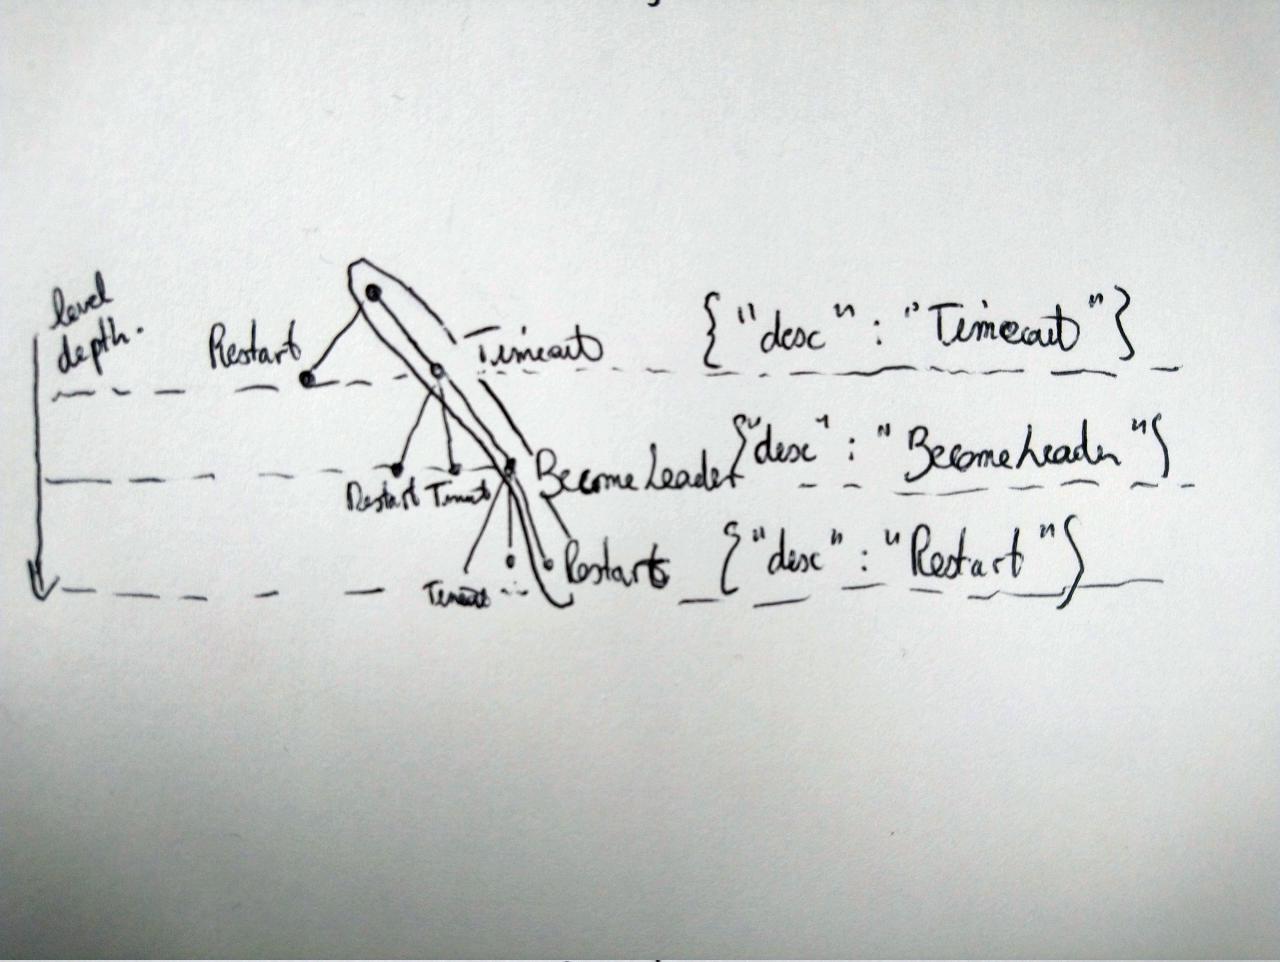 level
depth.
Restart
Timeout
{"desc" : "Timeout"}
Restart Timeout
BecomeLeader
{"desc" : "BecomeLeader"}
Timeout ...
Restart
{"desc" : "Restart"}